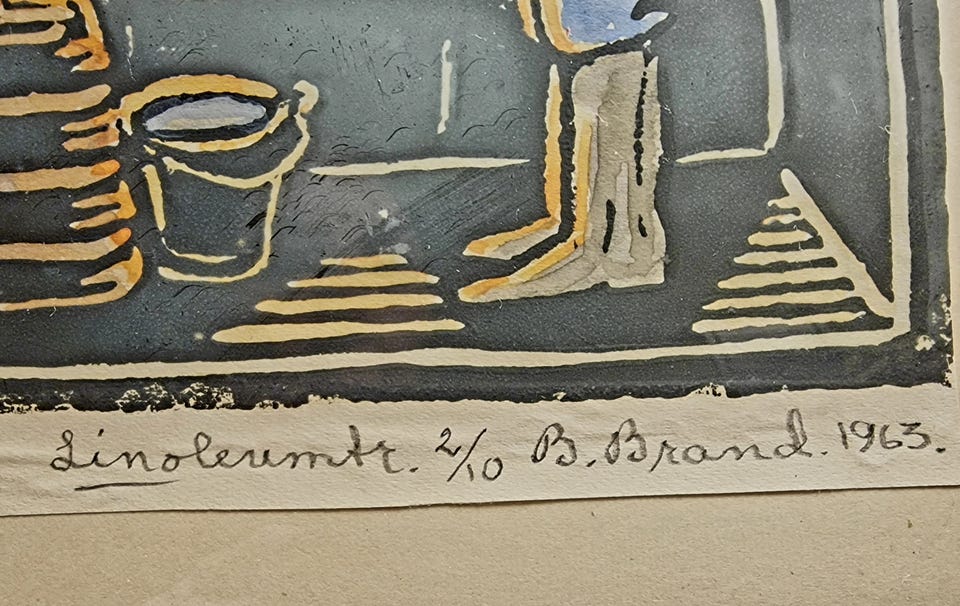 Linoleumtr. 2/10 B. Brand. 1963.